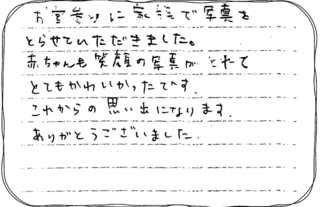 お宮参りに家族で写真を
とらせていただきました。
赤ちゃんも笑顔の写真がとれて
とてもかわいかったです.
これからの思い出になります.
ありがとうございました.